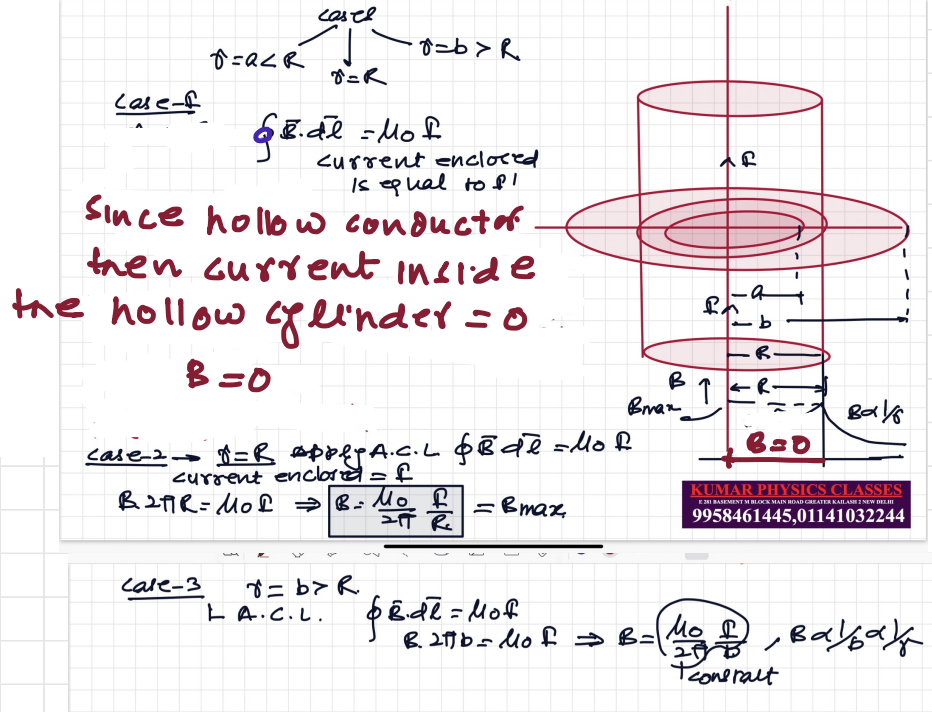 cases
r=a<R
r=R
r=b>R
case-I
∮ B̄.dl̄ = μ₀ I
current enclosed
is equal to I'
Since hollow conductor
then current inside
the hollow cylinder = 0
B=0
case-2 → r=R apply A.C.L ∮ B̄ dl̄ = μ₀ I
current enclosed = I
B. 2πR = μ₀ I ⇒ B = μ₀/2π I/R = Bmax
I
I
a
b
R
B
R
Bmax
B∝1/r
B=0
KUMAR PHYSICS CLASSES
E 281 BASEMENT M BLOCK MAIN ROAD GREATER KAILASH 2 NEW DELHI
9958461445,01141032244
case-3 r = b > R
A.C.L. ∮ B̄.dl̄ = μ₀ I
B. 2πb = μ₀ I ⇒ B = μ₀/2π I/b , B∝1/b∝1/r
constant